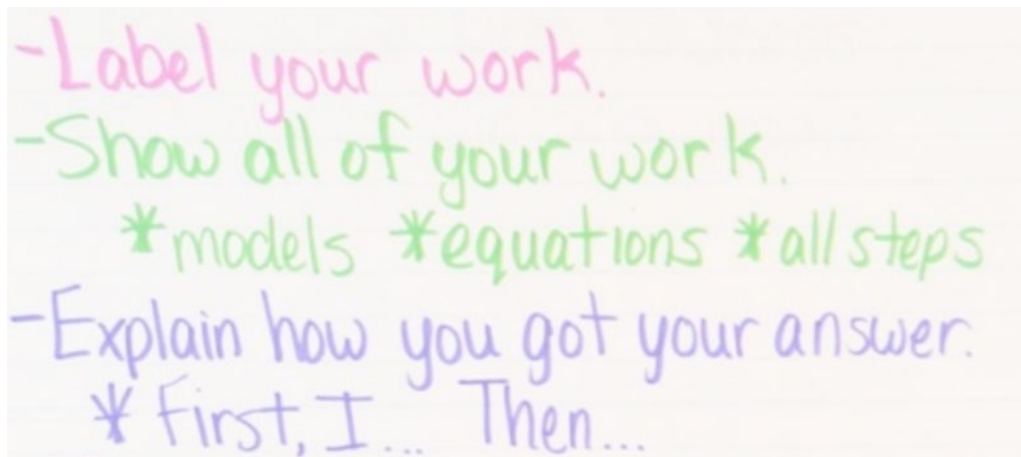 -Label your work.
-Show all of your work.
*models *equations *all steps
-Explain how you got your answer.
*First, I... Then...